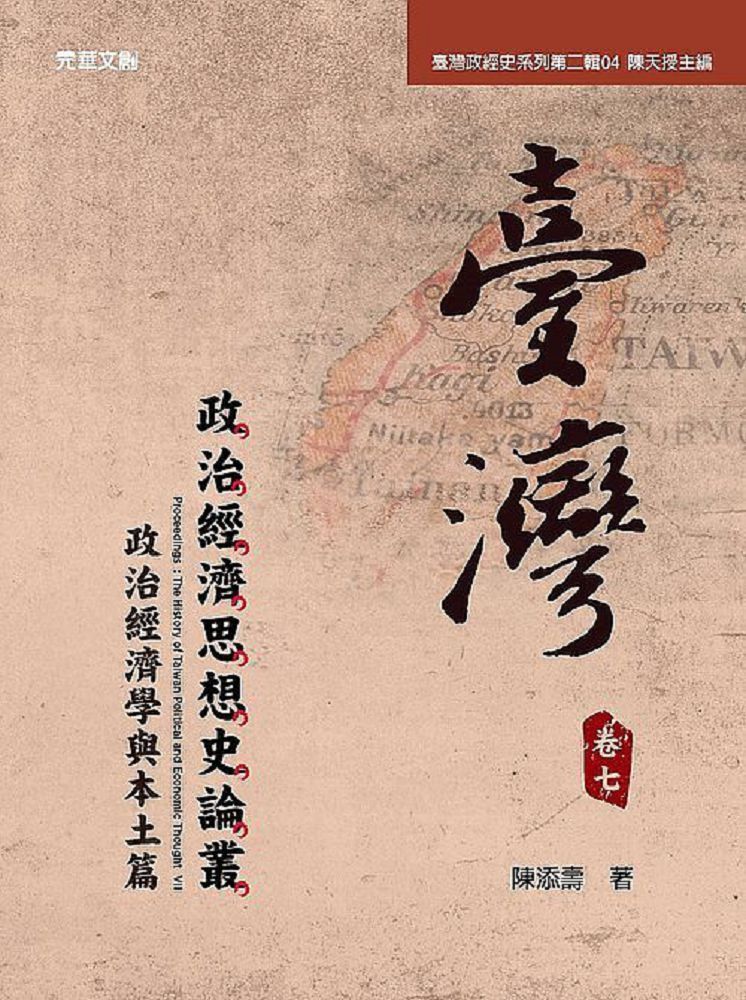 元華文創
臺灣政經史系列第二輯04 陳天授主編
臺灣
卷七
政治經濟思想史論叢
Proceedings：The History of Taiwan Political and Economic Thought VII
政治經濟學與本土篇
陳添壽 著
TAIW
Kagi
Tainan